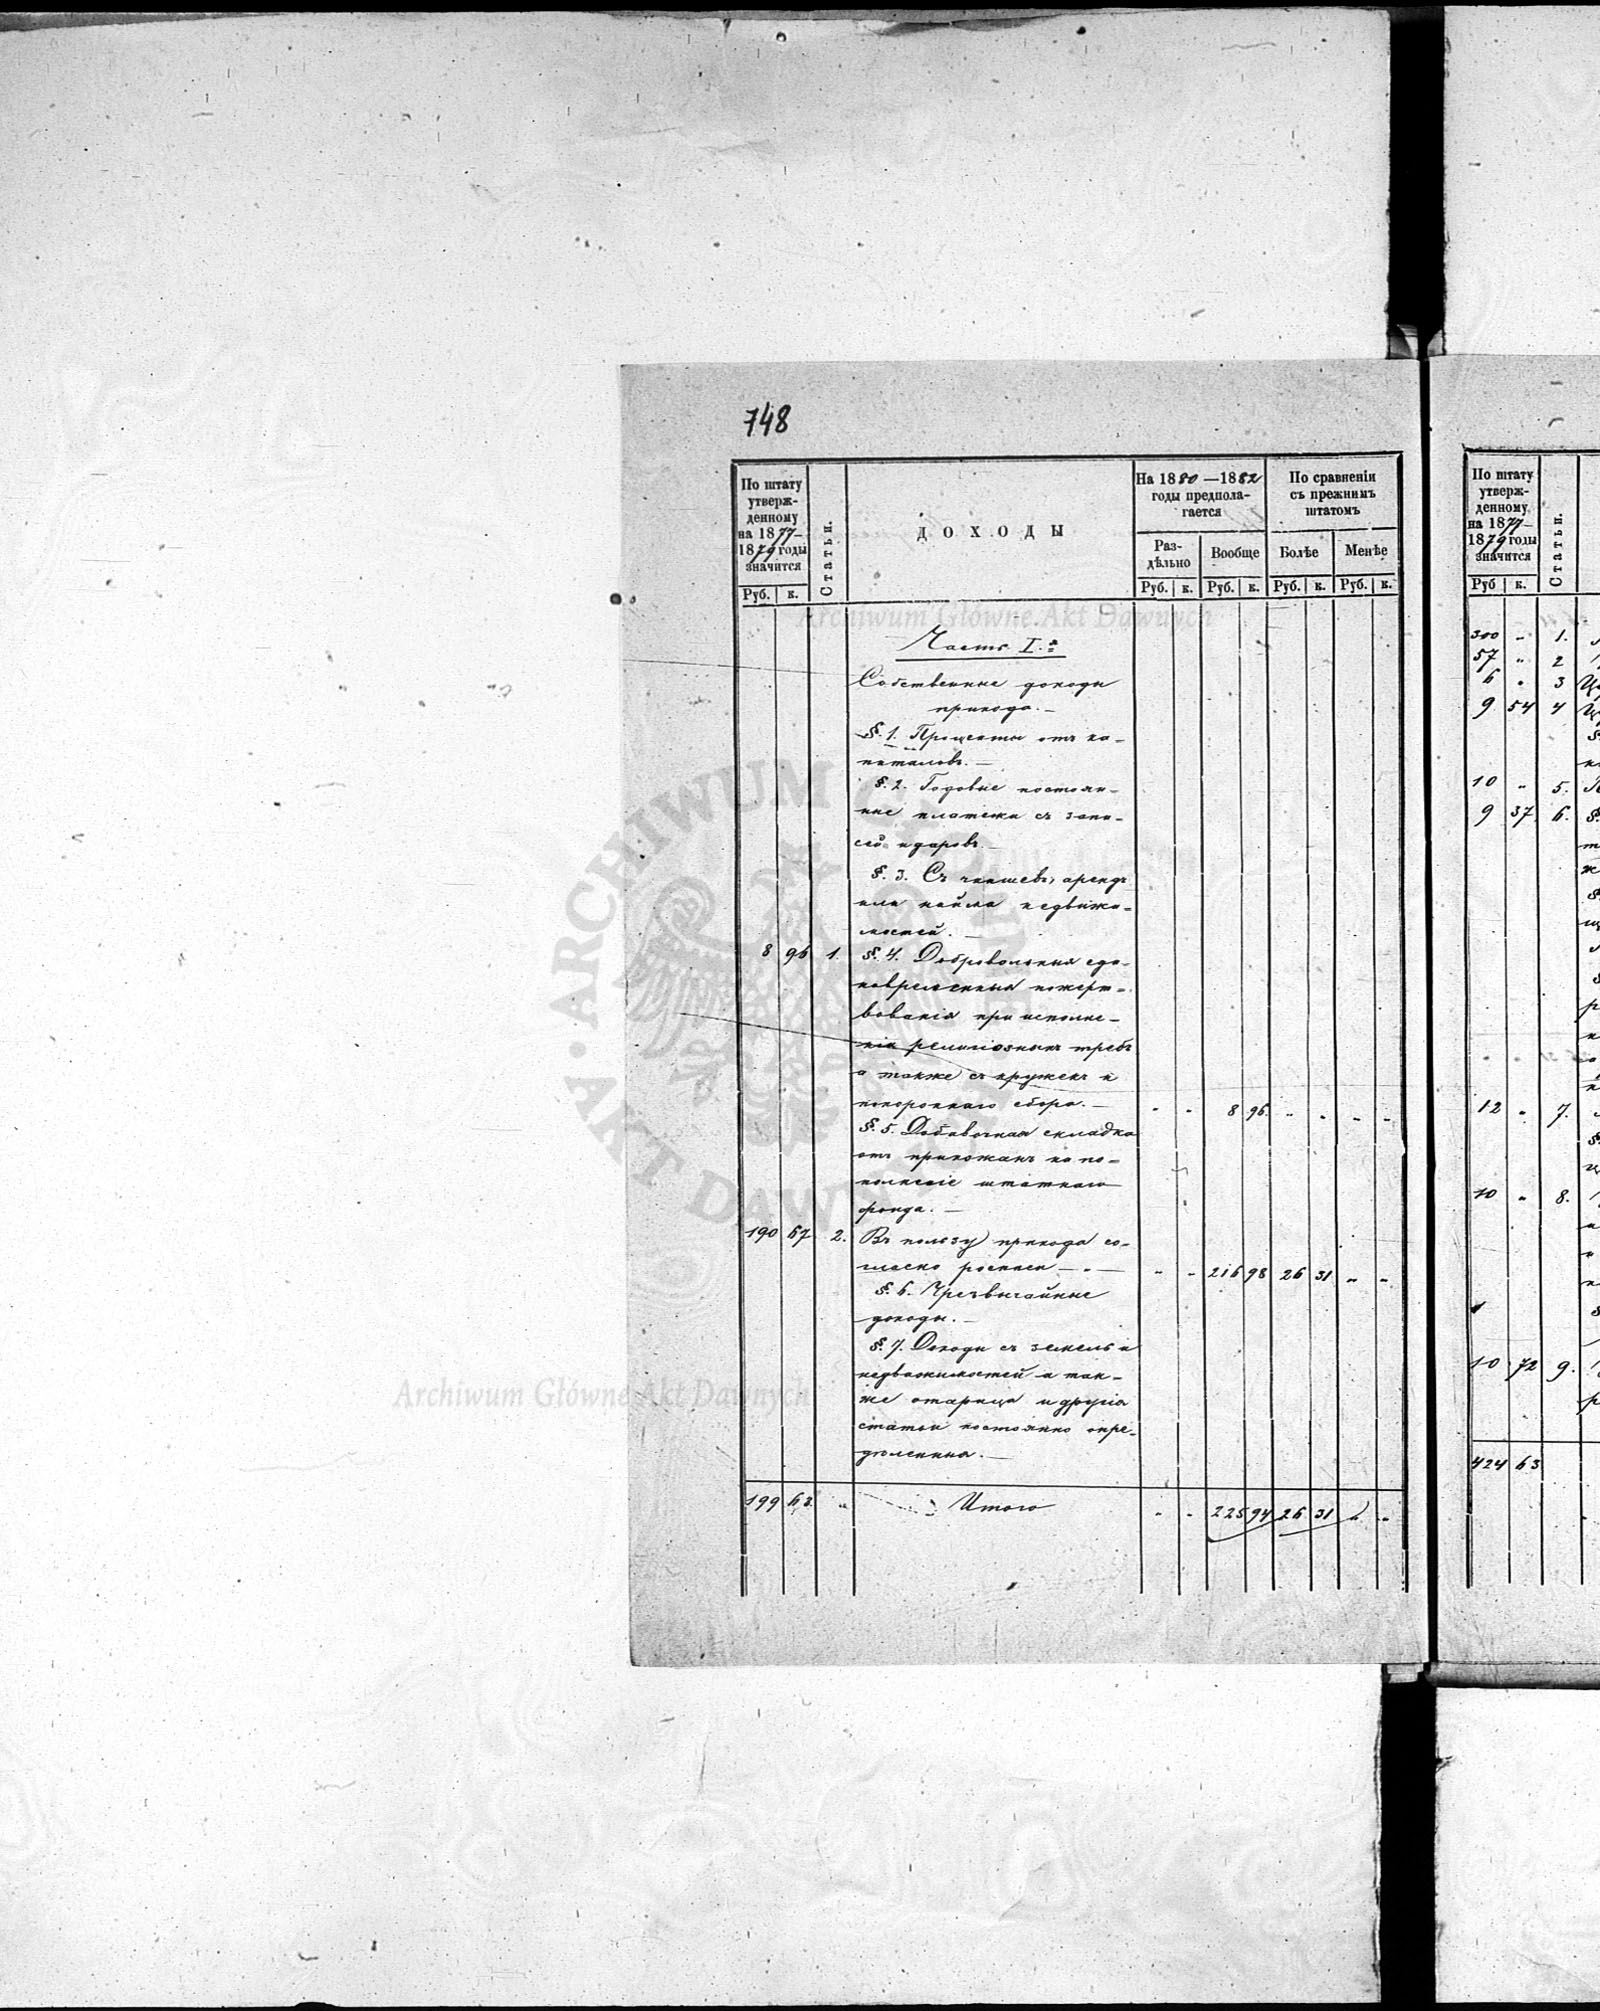 748
По штату утверж-денному на 1877-1879 годы значится
Статьи.
ДОХОДЫ
На 1880—1882 годы предпола-гается
По сравненіи съ прежнимъ штатомъ
Раз-дѣльно
Вообще
Болѣе
Менѣе
Руб. к. Руб. к. Руб. к. Руб. к. Руб. к.
Archiwum Główne Akt Dawnych
Часть I.я
Собственные доходы
прихода.—
§. 1. Проценты отъ ка-
питаловъ.—
§. 2. Годовые постоян-
ные платежи съ запи-
сей и даровъ.—
§. 3. Съ чиншевъ, арендъ
или найма недвижи-
мостей.—
8 96 1. §. 4. Добровольныя едо-
новременныя пожерт-
вованія при исполне-
ніи религіозныхъ требъ
а также съ кружекъ и
похороннаго сбора.— " " 8 96. " " " "
§. 5. Добавочная складка
отъ прихожанъ на по-
полненіе штатнаго
фонда.—
190 67 2. Въ пользу прихода со-
гласно росписи — " — " " 216 98 26 31 " "
§. 6. Чрезвычайные
доходы.—
§. 7. Доходы съ земель и
недвижимостей а так-
же отарица и другія
статьи постоянно опре-
дѣленныя.—
199 63. " Итого " " 225 94 26 31 " "
ARCHIWUM GŁÓWNE AKT DAWNYCH
Archiwum Główne Akt Dawnych
По штату утверж-денному на 1877-1879 годы значится
Статьи.
Руб к.
300 " 1.
57 " 2
6 " 3
9 54 4
10 " 5.
9 37. 6.
12 " 7.
10 " 8.
10 72 9.
424 63